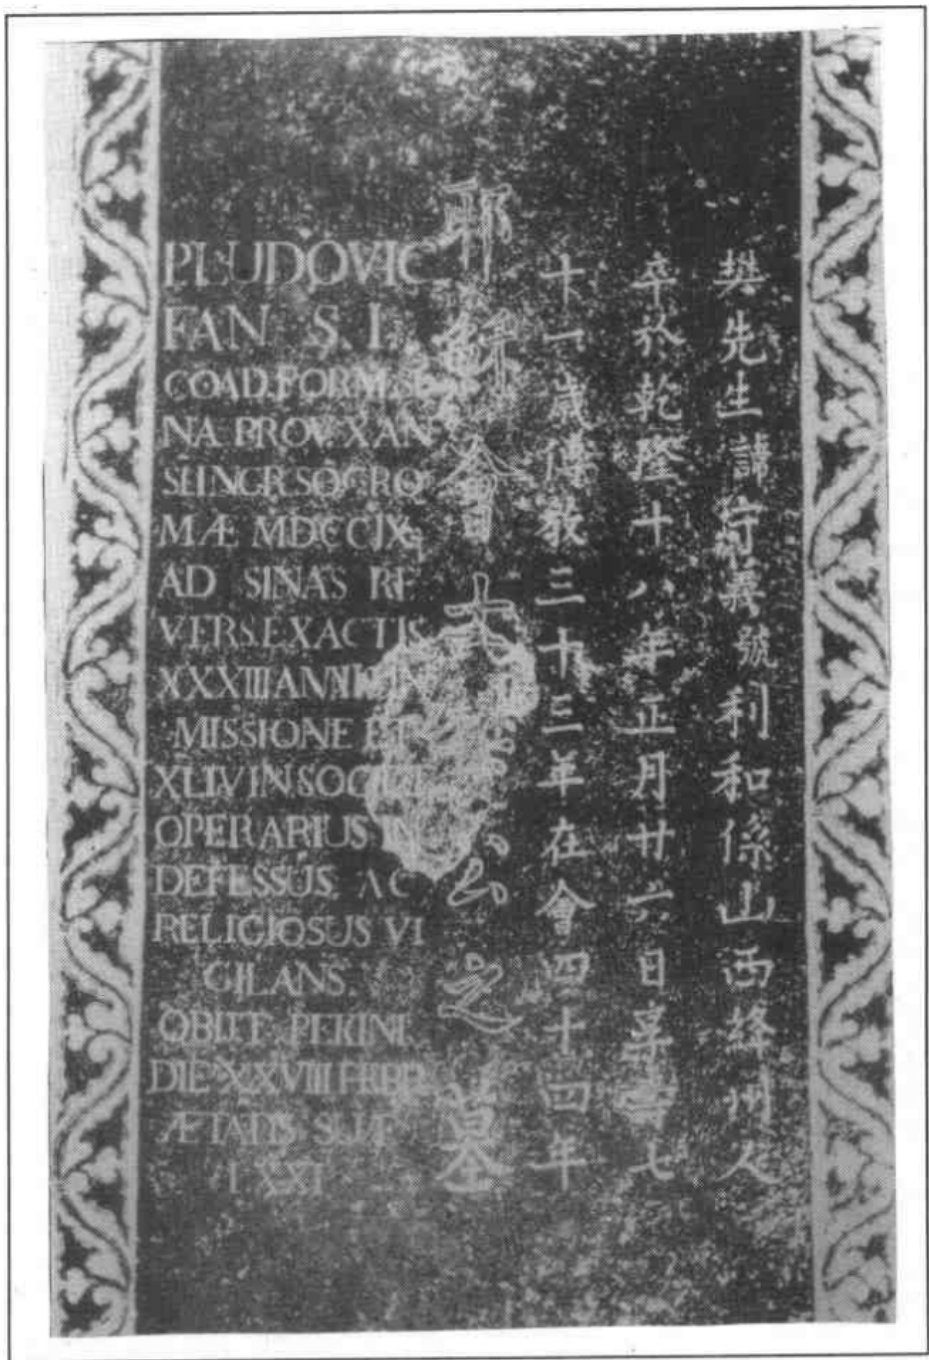 樊先生諱守義號利和係山西絳州人
卒於乾隆十八年正月廿六日享壽七
十一歲傳教三十三年在會四十四年
耶穌會士公之墓
P LUDOVIC
FAN S. I.
COAD. FORM. SI
NA PROV. XAN
SI INGR. SOC. RO
MÆ MDCCIX
AD SINAS RE
VERS. EXACTIS
XXXIII ANNIS IN
MISSIONE ET
XLIV IN
OPERARIUS IN
DEFESSUS AC
RELIGIOSUS VI
GILANS.
OBIIT PEKINI
DIE XXVIII FEBR
ÆTATIS SUÆ
LXXI